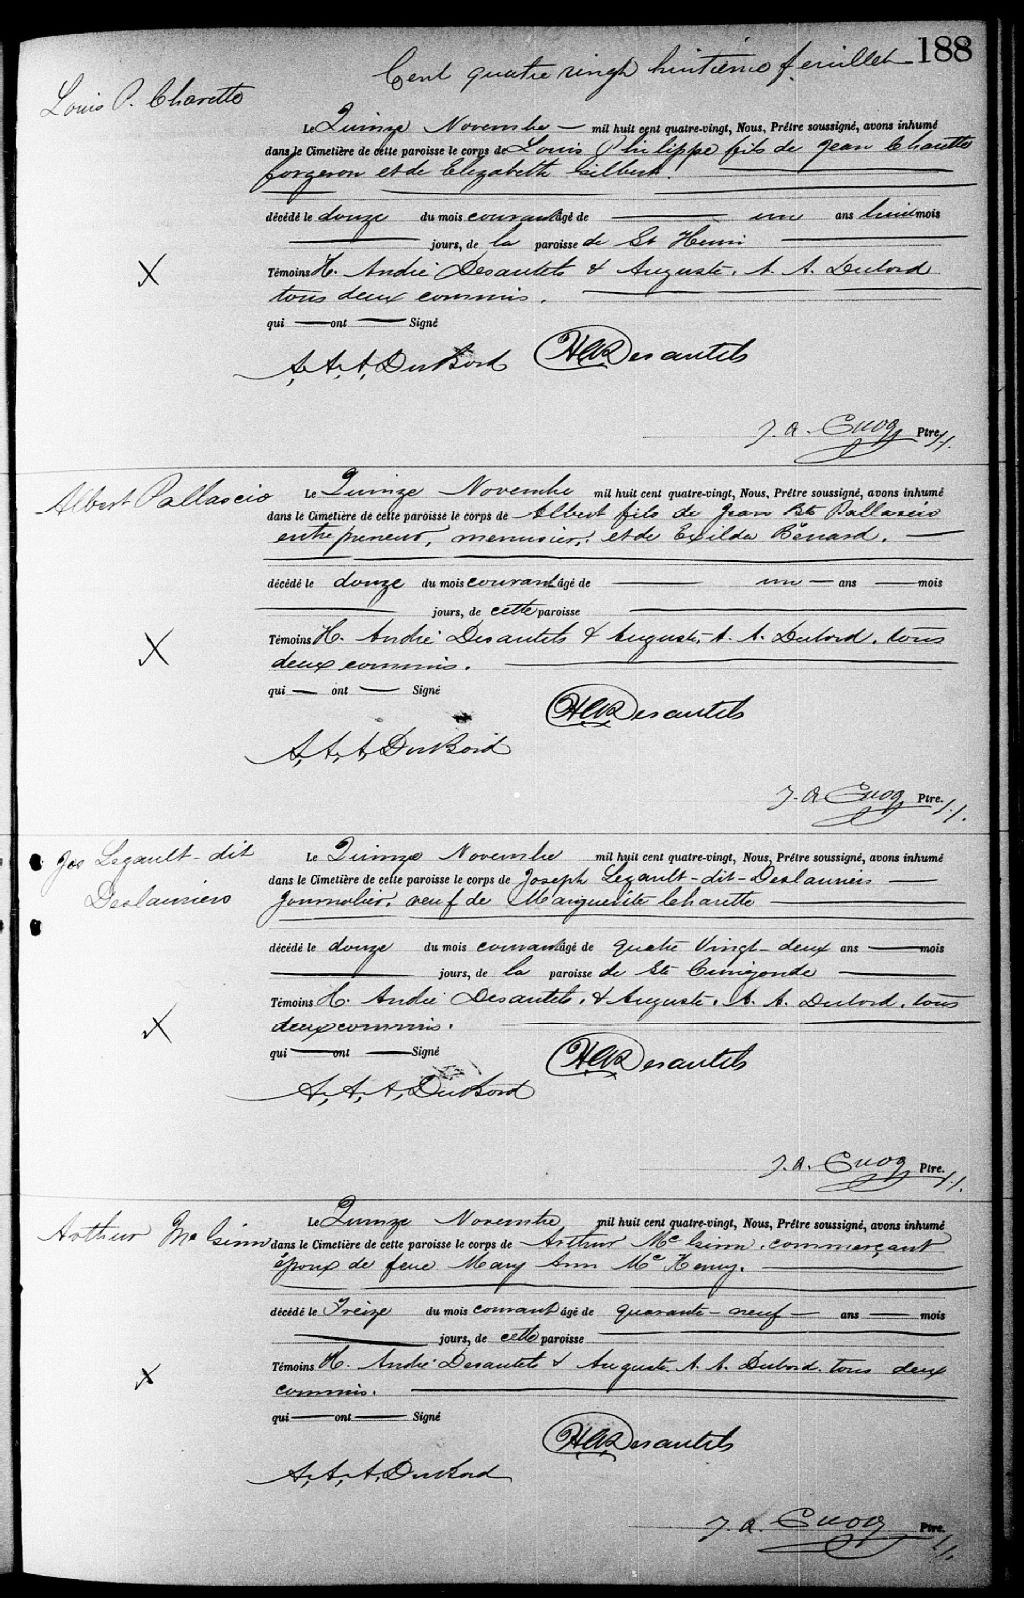 Cent quatre vingt huitième feuillet 188
Louis P. Charette
Le Quinze Novembre mil huit cent quatre-vingt, Nous, Prêtre soussigné, avons inhumé
dans le Cimetière de cette paroisse le corps de Louis Philippe fils de Jean Charette
forgeron et de Elizabeth Gilbert.
décédé le douze du mois courant âgé de un ans huit mois
jours, de la paroisse de St Henri
Témoins H. André Desautels & Auguste. A. A. Dubord
tous deux commis.
qui ont Signé
A. A. A. DuBord HADesautels
J. A. Cuoq Ptre
Albert Pallascio
Le Quinze Novembre mil huit cent quatre-vingt, Nous, Prêtre soussigné, avons inhumé
dans le Cimetière de cette paroisse le corps de Albert fils de Jean Bte Pallascio
entrepreneur, menuisier, et de Exilda Bénard.
décédé le douze du mois courant âgé de un ans mois
jours, de cette paroisse
Témoins H. André Desautels & Auguste. A. A. Dubord. tous
deux commis.
qui ont Signé
HADesautels
A. A. A. DuBord
J. A Cuoq Ptre.
Jos Legault-dit
Deslauriers
Le Quinze Novembre mil huit cent quatre-vingt, Nous, Prêtre soussigné, avons inhumé
dans le Cimetière de cette paroisse le corps de Joseph Legault-dit-Deslauriers
Journalier, veuf de Marguerite Charette
décédé le douze du mois courant âgé de quatre Vingt-deux ans mois
jours, de la paroisse de Ste Cunégonde
Témoins H. André Desautels. & Auguste. A. A. Dubord. tous
deux commis.
qui ont Signé
HADesautels
A. A. A. DuBord
J. A. Cuoq Ptre.
Arthur Mc Ginn
Le Quinze Novembre mil huit cent quatre-vingt, Nous, Prêtre soussigné, avons inhumé
dans le Cimetière de cette paroisse le corps de Arthur Mc Ginn. commerçant
époux de feue Mary Ann Mc Kenny.
décédé le Treize du mois courant âgé de quarante-neuf ans mois
jours, de cette paroisse
Témoins H. André Desautels & Auguste. A. A. Dubord. tous deux
commis.
qui ont Signé
HADesautels
A. A. A. DuBord
J. A. Cuoq Ptre.